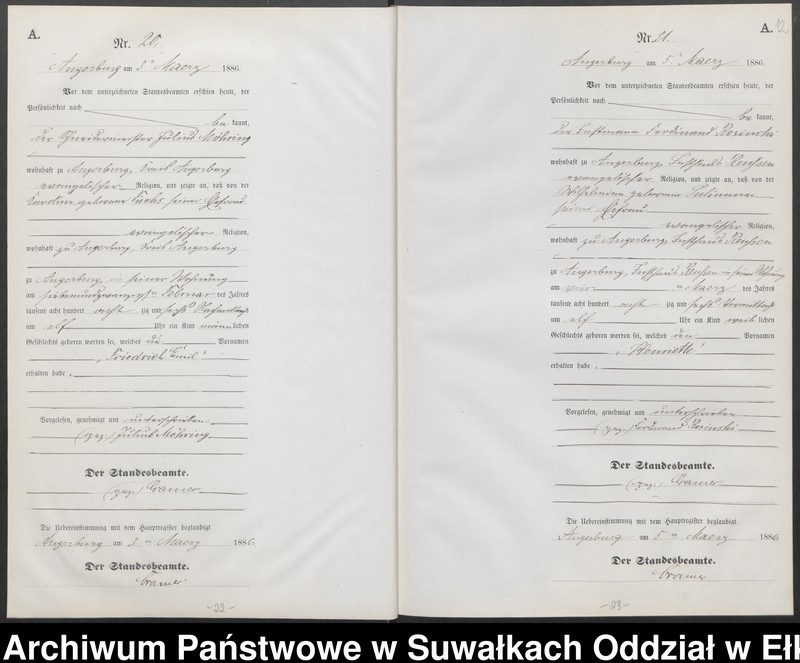 A.
Nr. 20.
Angerburg am 5ⁿ Maerz 1886.
Vor dem unterzeichneten Standesbeamten erschien heute, der
Persönlichkeit nach
be kannt,
der Schneidermeister Julius Möhring
wohnhaft zu Angerburg, Kreis Angerburg
evangelischer Religion, und zeigte an, daß von der
Karoline geborene Fuchs seiner Ehefrau
evangelischer Religion,
wohnhaft zu Angerburg Kreis Angerburg
zu Angerburg, in seiner Wohnung
am siebenundzwanzigst Februar des Jahres
tausend acht hundert acht zig und sechs Nachmittags
um elf Uhr ein Kind männ lichen
Geschlechts geboren worden sei, welches die Vornamen
„Friedrich Emil"
erhalten habe.
Vorgelesen, genehmigt und unterschrieben
(gez.) Julius Möhring
Der Standesbeamte.
(gez.) Cramer
Die Uebereinstimmung mit dem Hauptregister beglaubigt
Angerburg am Maerz 1886
Der Standesbeamte.
Cramer
-22-
A.
12
Nr. 21.
Angerburg am 5ⁿ Maerz 1886.
Vor dem unterzeichneten Standesbeamten erschien heute, der
Persönlichkeit nach
be kannt,
der Instmann Ferdinand Rosinski
wohnhaft zu Angerburg, Reussen
evangelischer Religion, und zeigte an, daß von der
Wilhelmine geborene
seiner Ehefrau
evangelischer Religion,
wohnhaft zu Angerburg, Reussen
zu Angerburg, Reussen in seiner Wohnung
am Maerz des Jahres
tausend acht hundert acht zig und sechs Vormittags
um elf Uhr ein Kind weib lichen
Geschlechts geboren worden sei, welches den Vornamen
„Henriette"
erhalten habe.
Vorgelesen, genehmigt und unterschrieben
(gez.) Ferdinand Rosinski
Der Standesbeamte.
(gez.) Cramer
Die Uebereinstimmung mit dem Hauptregister beglaubigt.
Angerburg am 5ᵗᵉⁿ Maerz 1886
Der Standesbeamte.
Cramer
-23-
Archiwum Państwowe w Suwałkach Oddział w Ełk